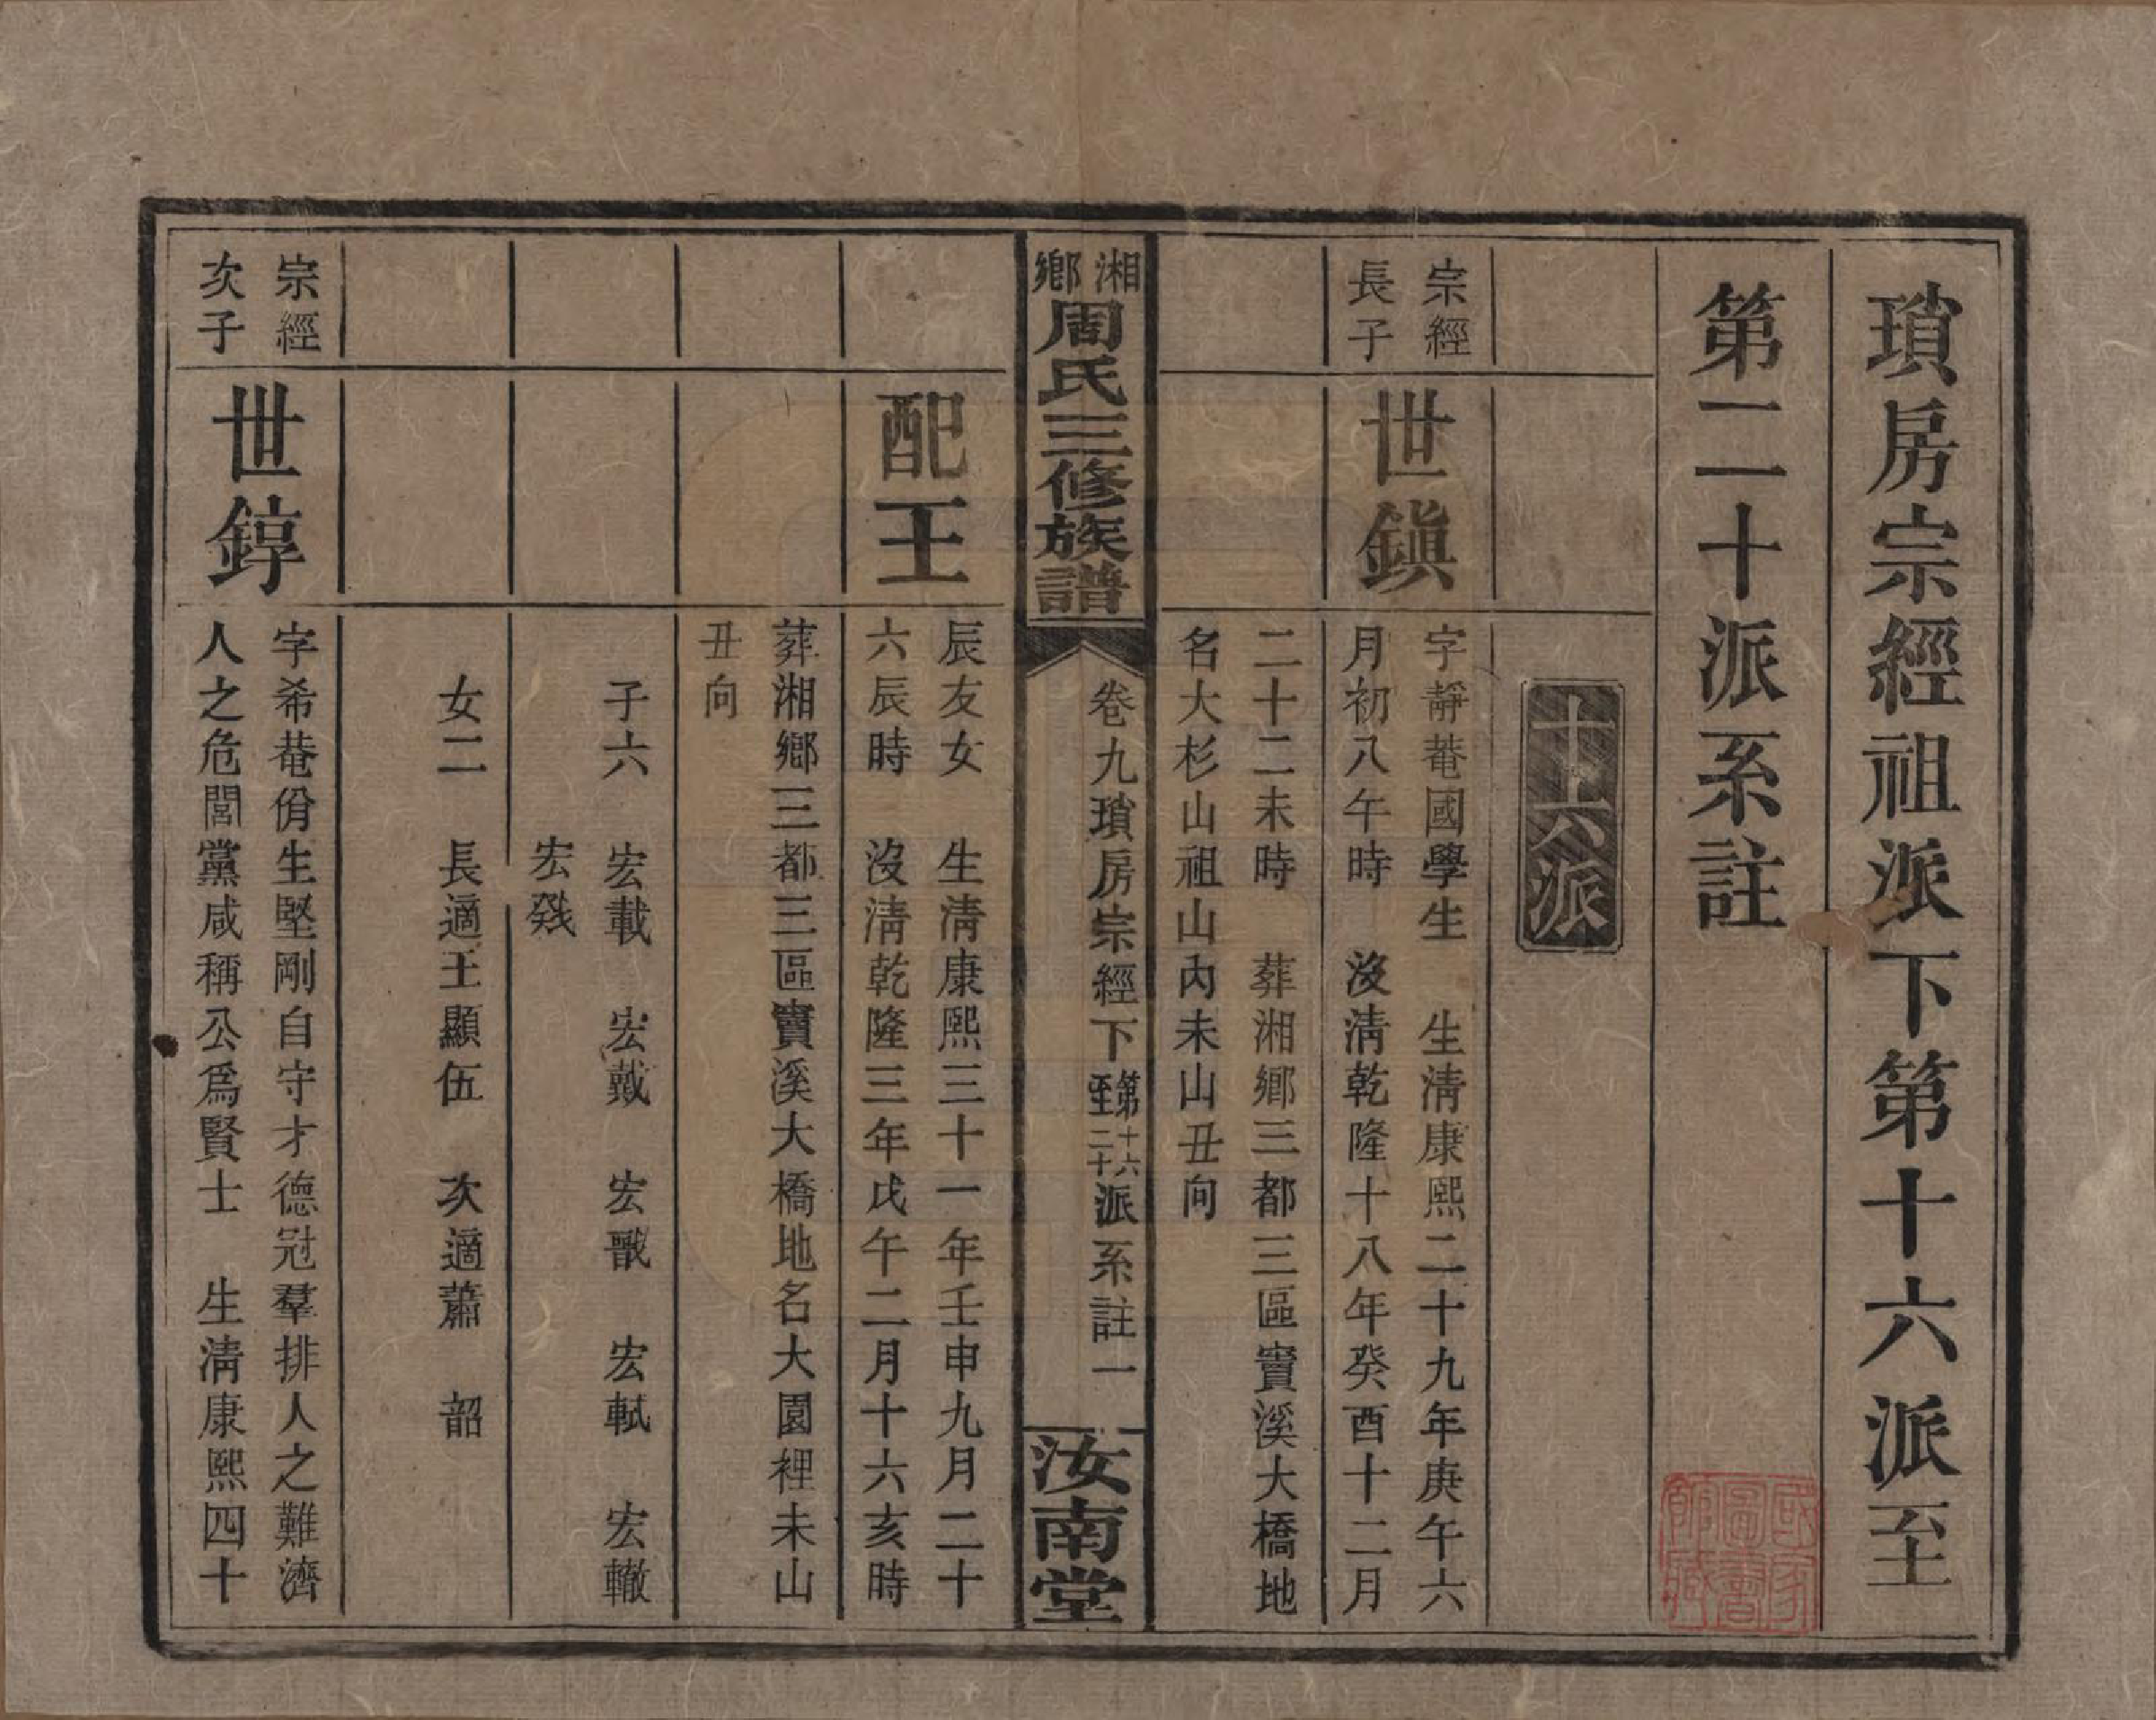 瑣房宗經祖派下第十六派至
第二十派系註
十六派
宗經
長子
世鎮
字靜菴國學生　生清康熙二十九年庚午六
月初八午時　沒清乾隆十八年癸酉十二月
二十二未時　葬湘鄉三都三區竇溪大橋地
名大杉山祖山內未山丑向
湘鄉
周氏三修族譜
卷九瑣房宗經下第十六至二十派系註一
汝南堂
配王
辰友女　生清康熙三十一年壬申九月二十
六辰時　沒清乾隆三年戊午二月十六亥時
葬湘鄉三都三區竇溪大橋地名大園裡未山
丑向
子六　宏載　宏戴　宏　宏軾　宏轍
宏
女二　長適王顯伍　次適蕭　韶
宗經
次子
世錞
字希菴佾生堅剛自守才德冠羣排人之難濟
人之危閭黨咸稱公爲賢士　生清康熙四十
國家
圖書
館藏